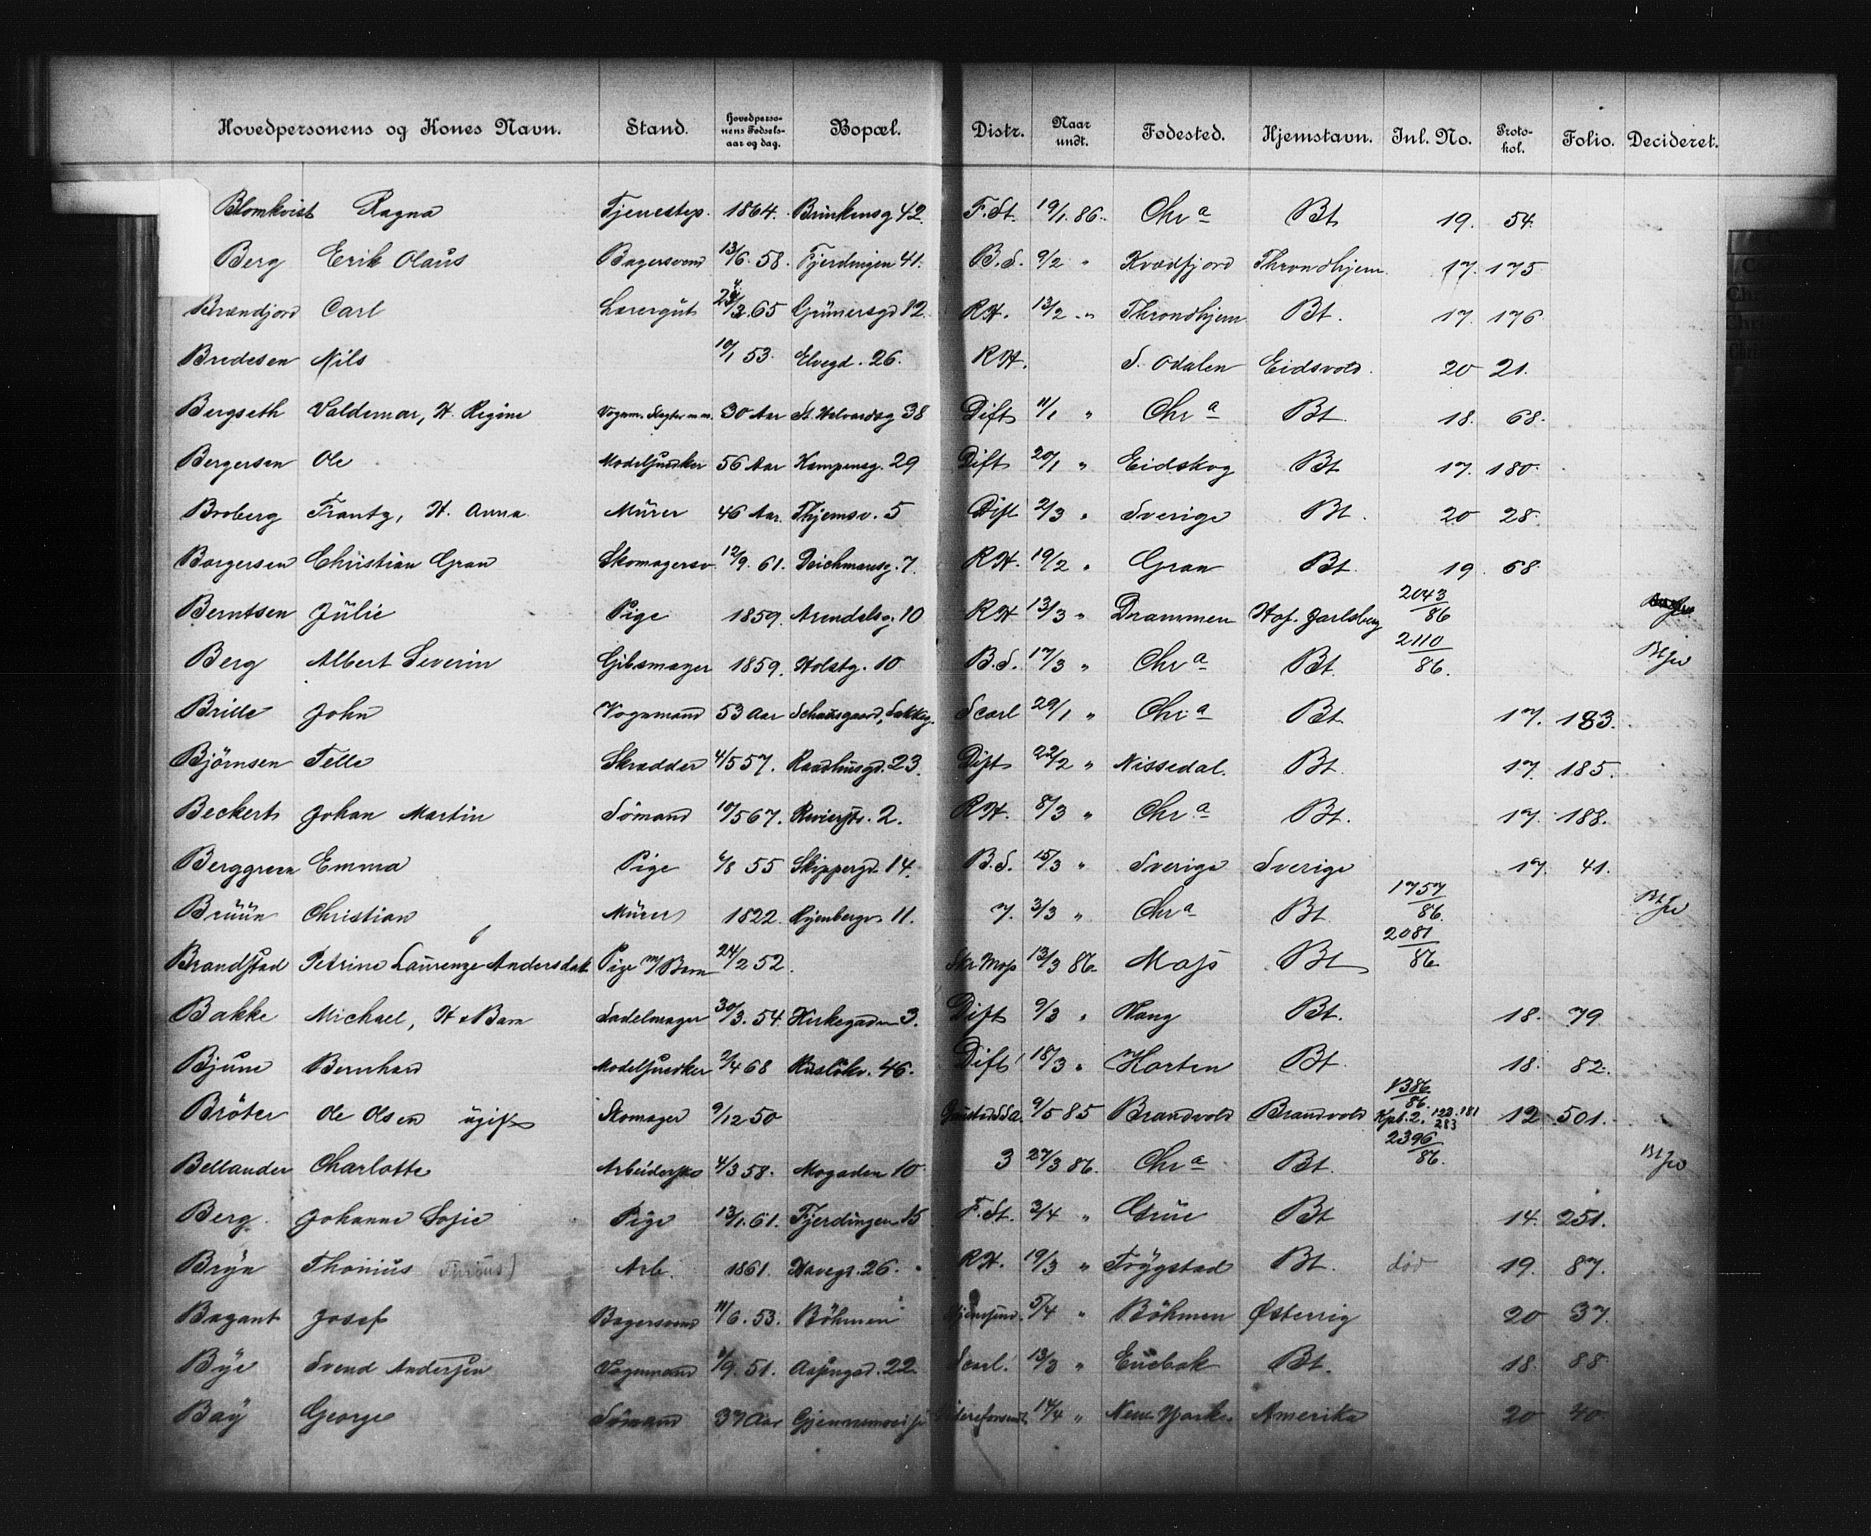 Hovedpersonens og Kones Navn. Stand. Hovedpersonens Fødselsaar og dag. Bopæl. Distr. Naar undt. Fødested. Hjemstavn. Inl. No. Protokol. Folio. Decideret.
Blomkvist Ragna Tjenestep. 1864. Brinkensg 42. F. St. 19/1 86. Chr a Bt 19. 54.
Berg Erik Olaus Bagersvend 13/6. 58. Fjerdingen 41. B. S. 9/2 " Kvædfjord Throndhjem 17. 175
Brændjord Carl Lærergut 65 Grünersgd 12. RH. 13/2 " Throndhjem Bt. 17. 176
Bredesen Nils 10/1 53. Elvegd. 26. RH. S. Odalen Eidsvold. 20 21.
Bergseth Valdemar, H. Regine 30 Aar St. Halvardsg 38 Dift 11/1 " Chr a Bt 18. 68.
Bergersen Ole Modelsnedker 56 Aar Kampensg. 29 Dift 20/1 " Eidskog Bt 17. 180.
Broberg Frantz, H. Anna Mürer 46 Aar. Thjemsv. 5 Dift 2/3 " Sverige Bt. 20 28.
Borgersen Christian Gran Skomagersv. 12/9. 61. Deichmansg. 7. RH. 19/2 " Gran Bt. 19. 68.
Berntsen Jülie Pige 1859. Arendalsg. 10 RH 13/3 " Drammen Hof. Jarlsberg 2043/86
Berg Albert Severin Gibsmager 1859. Holstg. 10 B. S. 17/3 " Chr a Bt. 2110/86.
Brille John Vognmand 53 Aar Schousgaard, Sc arl 29/1 " Chr a Bt 17. 183.
Bjørnsen Telle Skrædder 4/5 57. Raadhusgd. 23. Dift 22/2 " Nissedal. Bt. 17. 185.
Beckert Johan Martin Sømand 10/5 67. Revierstr. 2. RH. 8/3 " Chr a Bt. 17. 188.
Berggreen Emma Pige 6/8 55 Skippergd. 14. B. S. 15/3 " Sverige Sverige 17. 41.
Brüün Christian Mürer 1822. Ryenbergv 11. 7. 3/3 " Chr a Bt 1757/86.
Brandstad Petrine Laurenze Andersdatt Pige m/ Barn 24/2 52. 13/3 86. Moss Bt 2081/86
Bakke Michael, H & Barn Sadelmager 30/3. 54. Kirkegaden 3. Dift 9/3 " Vang Bt. 18. 79
Bjune Bernhard Modelsnedker 2/4 68 Rusløkv. 46. Dift 18/3 " Horten Bt. 18. 82.
Bröter Ole Olsen ugift Skomager 9/12 50 9/5 85 Brandvold Brandvold 1386/86 Kpb. 2. 123. 181 283 12 501.
Bellander Charlotte 4/3 58. Mogaden 10 3 27/3 86. Chr a Bt. 2396/86.
Berg. Johanne Sofie Pige 13/1. 61. Fjerdingen 15 F. St. 2/4 " Grue Bt 14. 251.
Bryn Thonius Arb. 1861. Havegt. 26. RH. 19/3 " Trygstad Bt. død 19. 87.
Bagant Josef Bagersvend 11/6. 53. Böhmen 5/4 " Böhmen Østerrig 20 37.
Bye Svend Anderssen Vognmand 51. 22. Sc arl. 13/3 " Enebak Bt. 18. 88.
Bay George Sømand 37 Aar 14/4 " New York Amerika 20 40